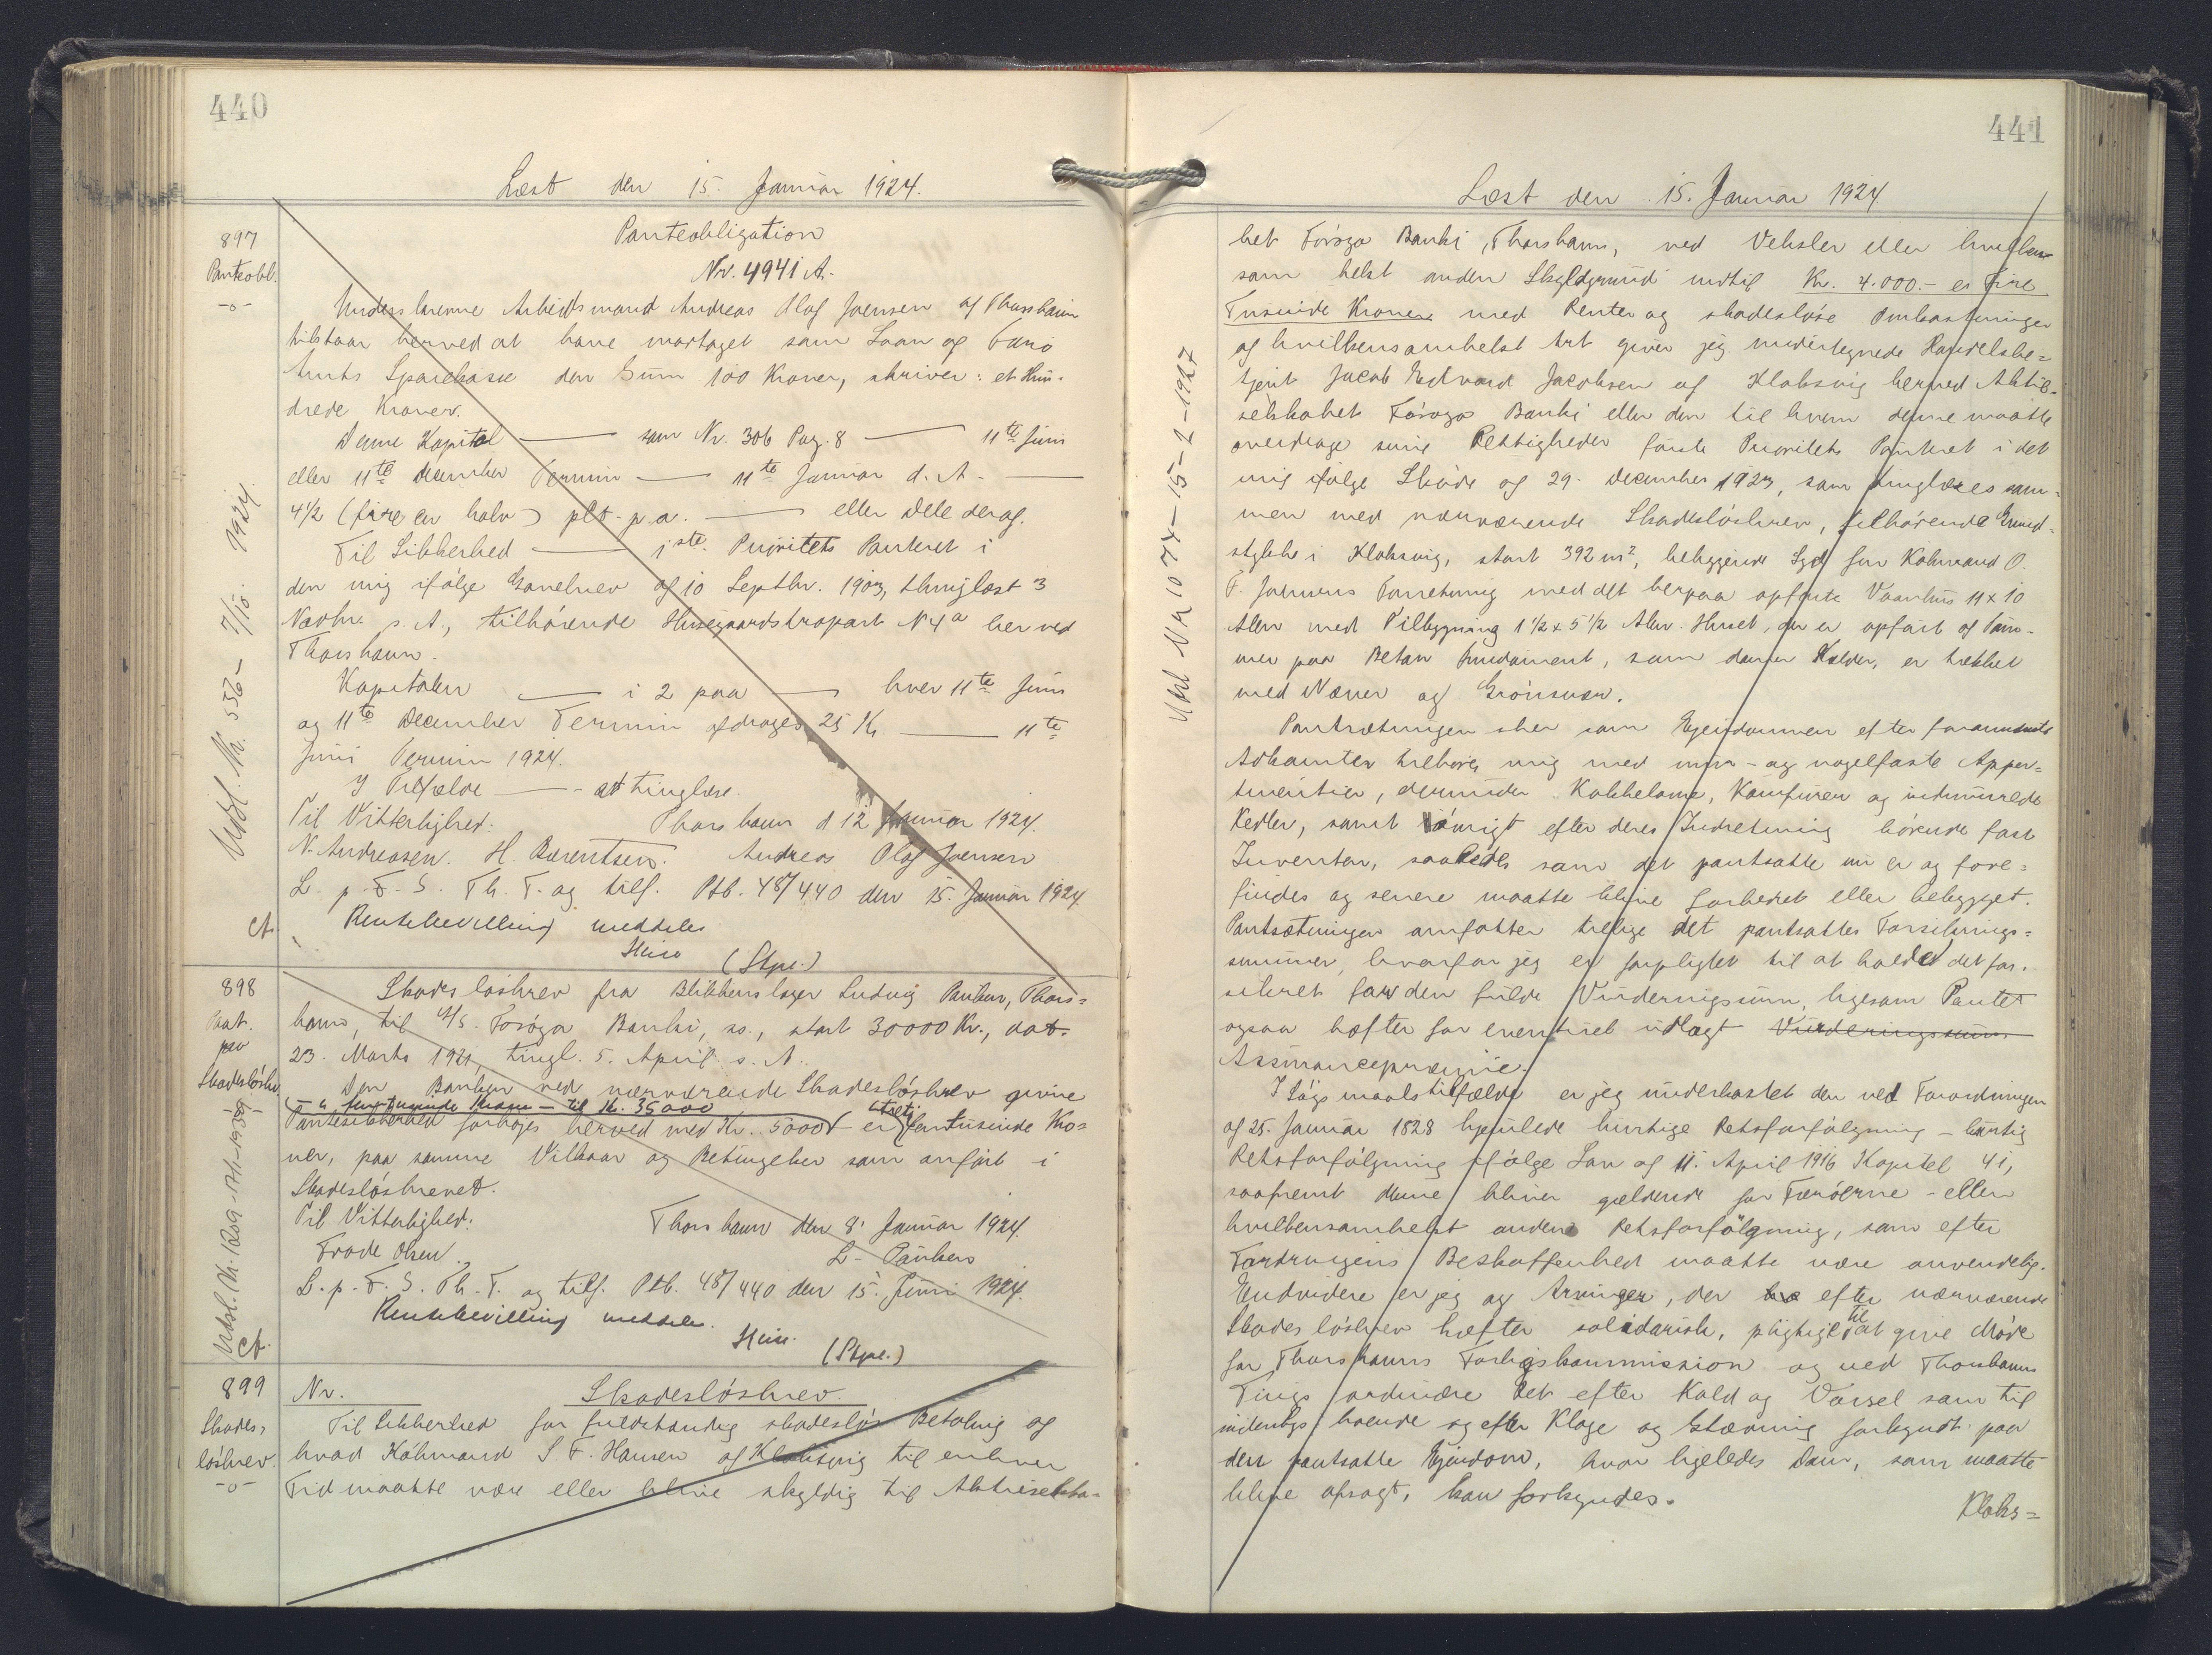 440
Læst den 15. Januar 1924.
897
Panteobl.
-o-
Panteobligation
Nr. 4941 A.
Underskrevne Arbejdsmand Andreas Olaf Joensen af Thorshavn
tilstaar herved at have modtaget som Laan af Færø
Amts Sparekasse den Sum 100 Kroner, skriver: et Hun-
drede Kroner.
Denne Kapital —— som Nr. 306 Pag. 8 —— 11te Juni
eller 11te December Termin —— 11te Januar d. A. ——
4½ (fire en halv) pCt. p.a. —— eller Dele deraf.
Til Sikkerhed —— 1ste Prioritets Panteret i
den mig ifølge Gavebrev af 10 Septbr. 1903, thinglæst 3
Novbr. s. A., tilhørende Husegaardstropart No 4a her ved
Thorshavn.
Kapitalen —— i 2 paa —— hver 11te Juni
og 11te December Termin afdrages 25 Kr. —— 11te
Juni Termin 1924.
I Tilfælde —— at tinglæse.
Til Vitterlighed: Thorshavn d 12 Januar 1924.
N. Andreasen. H. Bærentsen. Andreas Olaf Joensen
L. p. F. S. Th. T. og tilf. Ptb. 48/440 den 15. Januar 1924
Rentebevilling meddeles
(Stpl.)
Udsl. Nr. 556 - 7/10. 1924.
A.
898
Paat.
paa
Skadesløsbr.
-o-
Skadesløsbrev fra Blikkenslager Ludvig Poulsen, Thors=
havn, til A/S. Føroya Banki, ss., stort 30000 Kr., dat.
23. Marts 1921, tingl. 5. April s. A.
Den Banken ved nærværende Skadesløsbrev givne
- til Kr. 35000
Pantesikkerhed forhøjes herved med Kr. 5000 - er femtusinde Kro=
ner, paa samme Vilkaar og Betingelser som anført i
Skadesløsbrevet.
Til Vitterlighed: Thorshavn den 8' Januar 1924.
Frode Olsen. L. Poulsen
L. p. F. S. Th. T. og tilf. Ptb. 48/440 den 15. Juni 1924.
Rentebevilling meddeles.
(Stpl.)
Udsl. Nr. 1209 - 17/11-1939
A.
899
Skades=
løsbrev.
-o-
Nr. Skadesløsbrev.
Til Sikkerhed for fuldstændig skadesløs Betaling af
hvad Købmand S. F. Hansen af Klaksvig til enhver
Tid maatte være eller blive skyldig til Aktieselska-
441
Læst den 15. Januar 1924
Udsl. Nr 1074 - 15-2-1927
bet Føroya Banki, Thorshavn, ved Veksler eller hvilken
som helst anden Skyldgrund indtil Kr. 4.000.- er Fire
Tusinde Kroner med Renter og skadesløse Omkostninger
af hvilkensomhelst Art giver jeg undertegnede Handelsbe=
tjent Jacob Edvard Jacobsen af Klaksvig herved Aktie-
selskabet Føroya Banki eller den til hvem denne maatte
overdrage sine Rettigheder første Prioritets Panteret i det
mig ifølge Skøde af 29. December 1923, som tinglæses sam-
men med nærværende Skadesløsbrev, tilhørende Grund-
stykke i Klaksvig, stort 392 m², beliggende Syd for Købmand O.
F. Joensens Forretning med det herpaa opførte Vaanhus 11 x 10
Alen med Tilbygning 1½ x 5½ Alen. Huset, der er opført af Tøm-
mer paa Beton Fundament, som danner Kælder, er tækket
med Næver og Grønsvær.
Pantsætningen sker som Ejendommen efter forannævnte
Adkomster tilhører mig med mur- og nagelfaste Apper=
tinentier, derunder Kakkelovne, Komfurer og indmurede
Kedler, samt iøvrigt efter deres Indretning hørende fast
Inventar, saaledes som det pantsatte nu er og fore=
findes og senere maatte blive forbedret eller bebygget.
Pantsætningen omfatter tillige det pantsattes Forsikrings=
summer, hvorfor jeg er forpligtet til at holde det for-
sikret for den fulde Vurderingssum, ligesom Pantet
ogsaa hæfter for eventuel udlagt Vurderingssum
Assurancepræmie.
I Søgsmaalstilfælde er jeg underkastet den ved Forordningen
af 25. Januar 1828 hjemlede hurtige Retsforfølgning - hurtig
Retsforfølgning ifølge Lov af 11. April 1916 Kapitel 41,
saafremt denne bliver gældende for Færøerne - eller
hvilkensomhelst anden Retsforfølgning, som efter
Fordringens Beskaffenhed maatte være anvendelig.
Endvidere er jeg og Arvinger, der efter nærværende
Skadesløsbrev hæfter solidarisk, pligtige til at give Møde
for Thorshavns Forligskommission og ved Thorshavns
Tings ordinære Ret efter Kald og Varsel som til
indenbys boende og efter Klage og Stævning forkyndt paa
den pantsatte Ejendom, hvor ligeledes Dom, som maatte
blive afsagt, kan forkyndes.
Klaks=